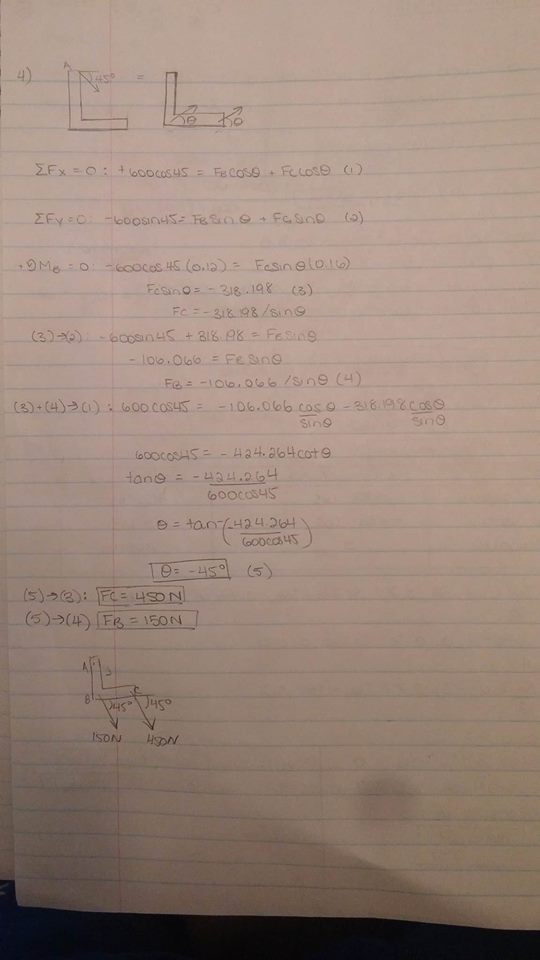 4)
A 45° = θ θ
ΣFx = 0: +600cos45 = FBcosθ + FCcosθ (1)
ΣFy=0: -600sin45 = FBsinθ + FCsinθ (2)
+↺MB =0: -600cos45(0.12) = FCsinθ(0.16)
FCsinθ = -318.198 (3)
FC = -318.198/sinθ
(3)→(2): -600sin45 + 318.198 = FBsinθ
-106.066 = FBsinθ
FB = -106.066/sinθ (4)
(3)+(4)→(1): 600cos45 = -106.066 cosθ/sinθ - 318.198 cosθ/sinθ
600cos45 = -424.264cotθ
tanθ = -424.264/600cos45
θ = tan⁻(-424.264/600cos45)
θ = -45° (5)
(5)→(3): FC = 450N
(5)→(4) FB = 150N
A
B C
45° 45°
150N 450N